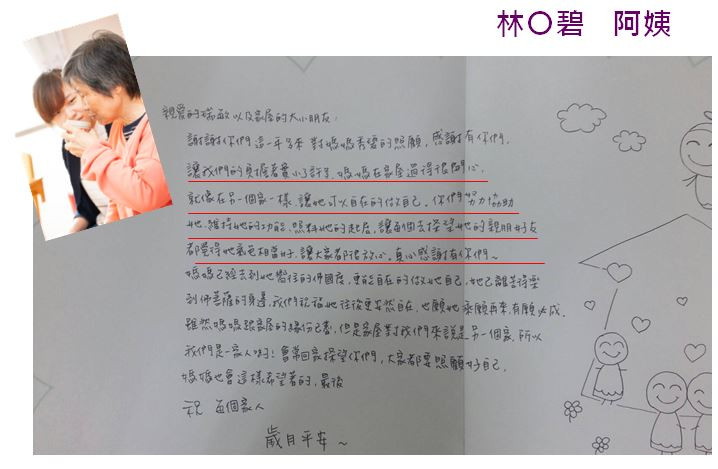 林〇碧 阿姨
親愛的瑞敏以及家屋的大小朋友:
謝謝你們這一年多來對媽媽秀碧的照顧,感謝有你們,
讓我們的負擔著實小了許多,媽媽在家屋過得很開心,
就像在另一個家一樣,讓她可以自在的做自己,你們努力協助
她,維持她的功能,照料她的起居,讓每個去探望她的親朋好友
都覺得她氣色相當好,讓大家都很放心,真心感謝有你們~
媽媽已經去到她嚮往的佛國度,更能自在的做她自己,她已離苦得樂
到佛菩薩的身邊,我們祝福她往後更安然自在,也願她乘願再來,有願必成.
雖然媽媽跟家屋的緣份已盡,但是家屋對我們來說是另一個家,所以
我們是一家人喲!會常回家探望你們,大家都要照顧好自己,
媽媽也會這樣希望著的,最後
祝 每個家人
歲月平安~